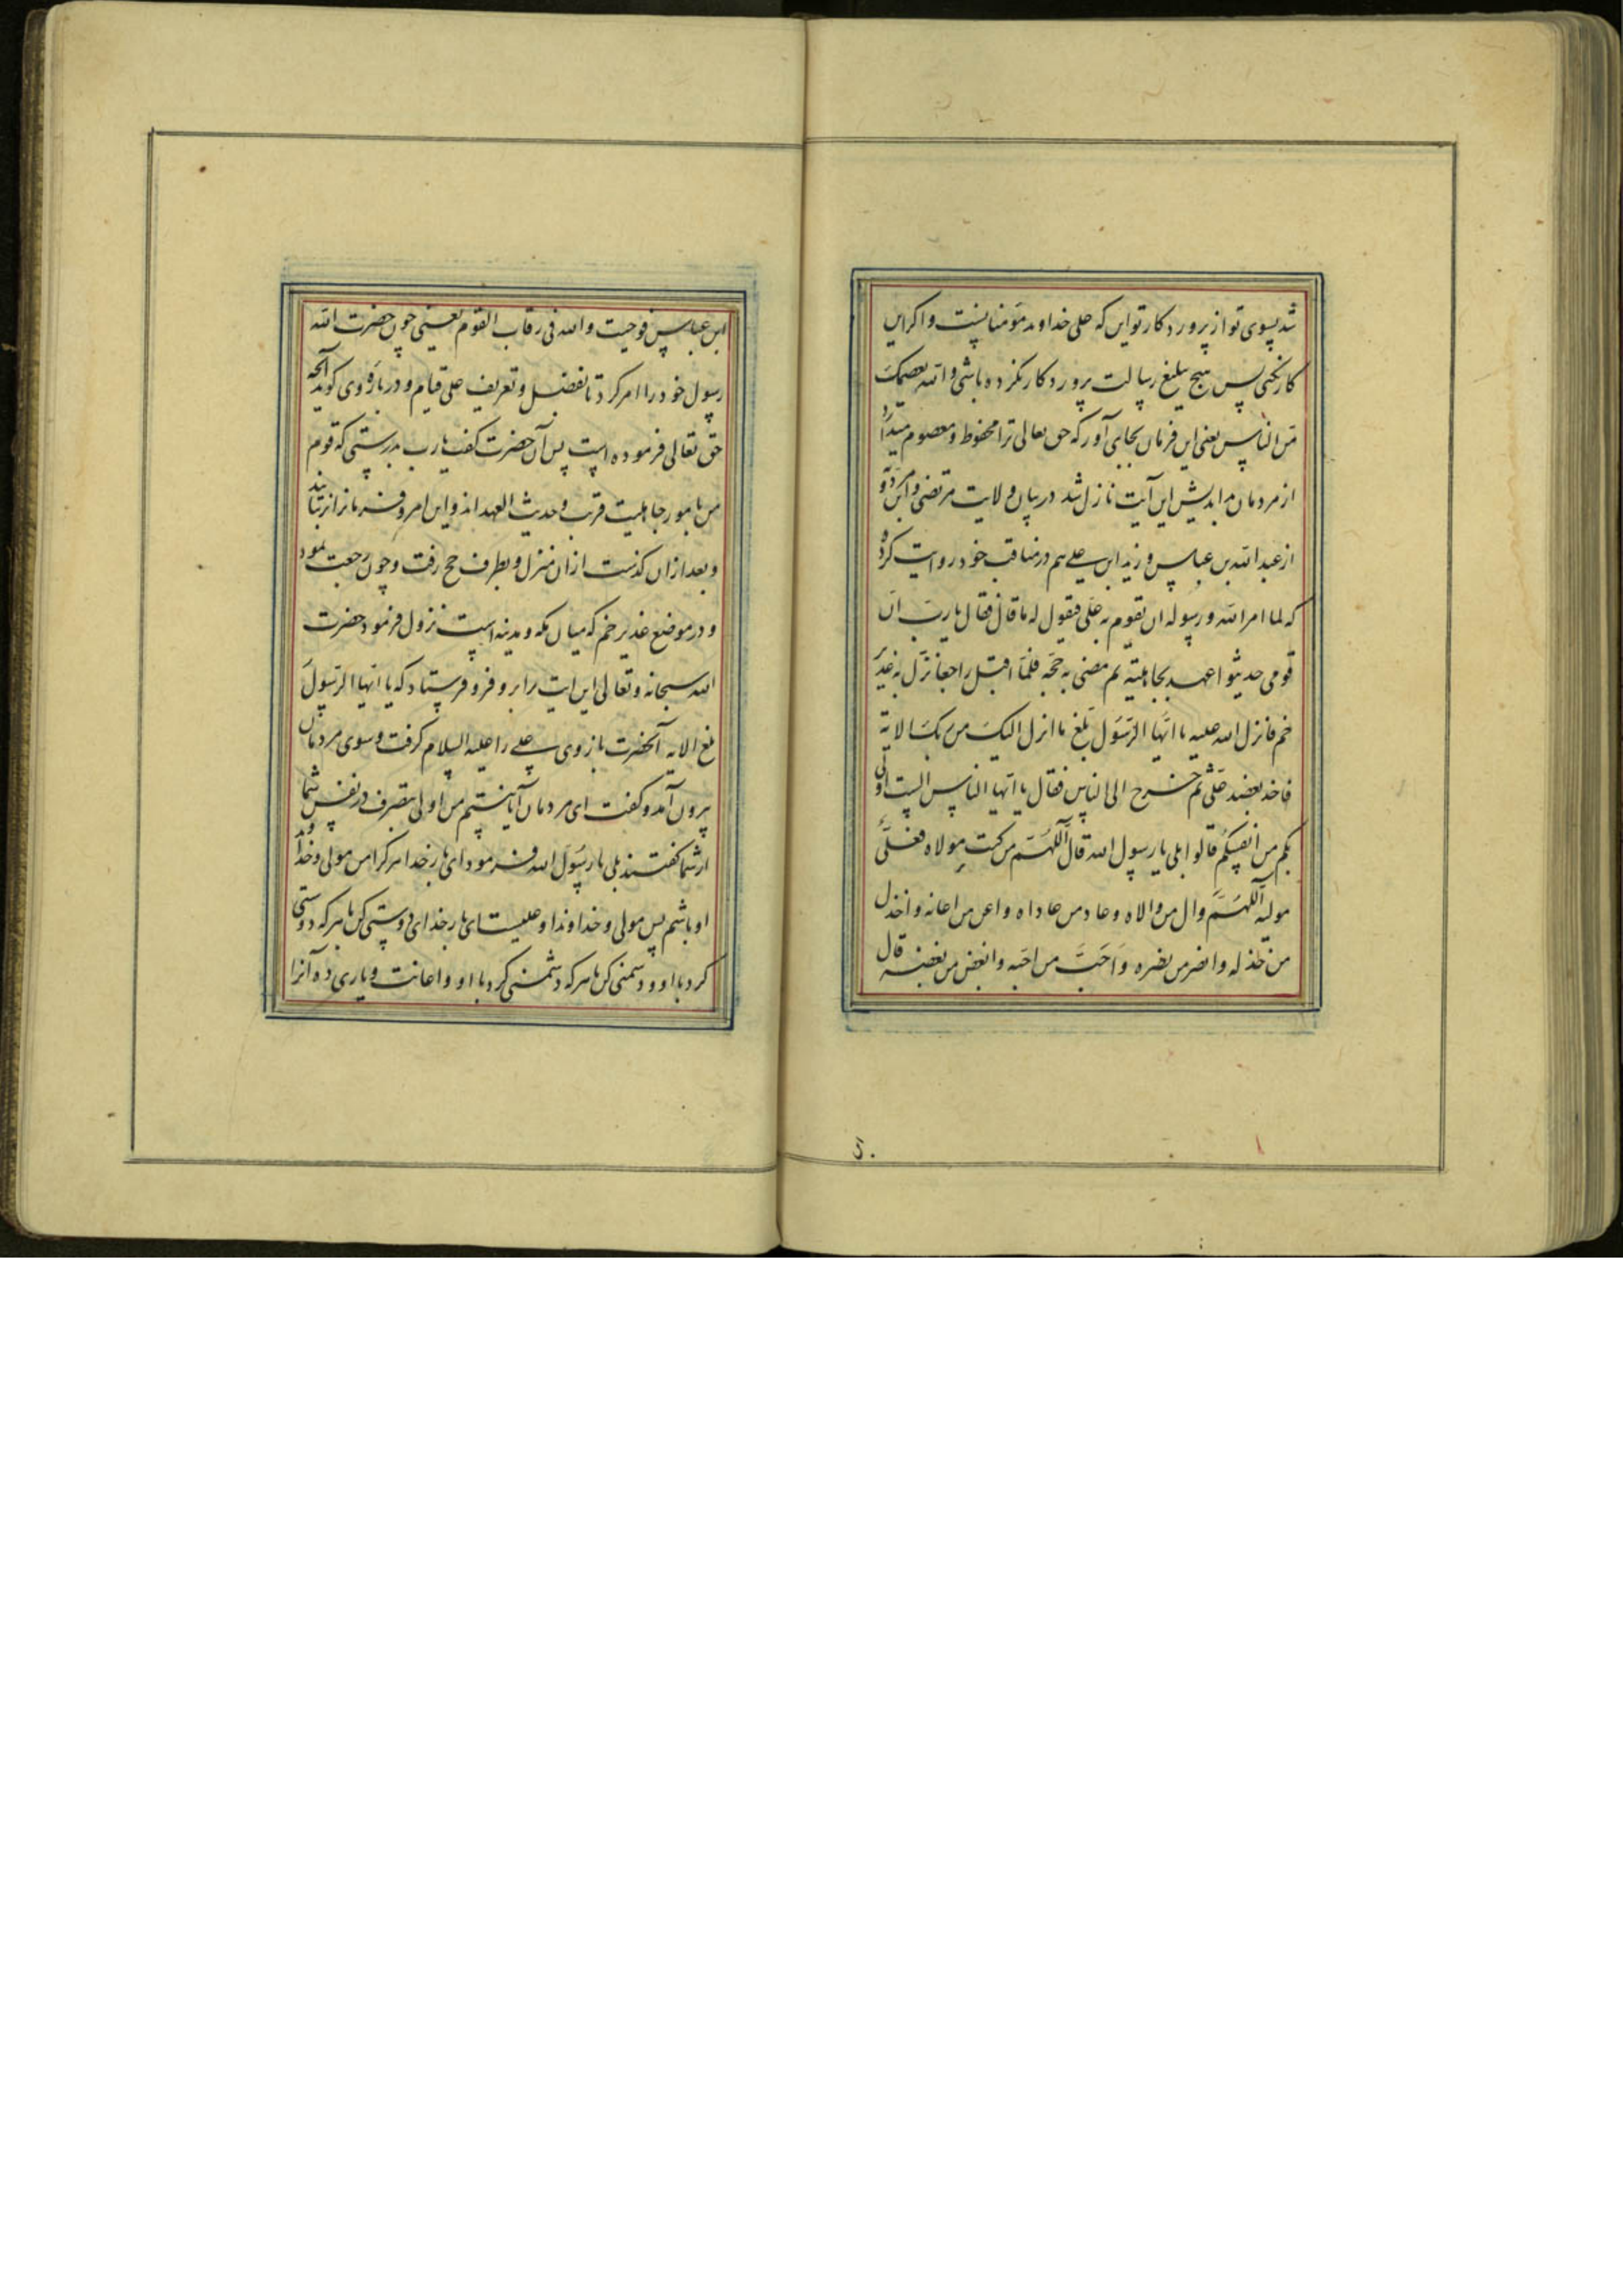 شد بسوی تو از پروردکار تو این که علی خداوند مؤمنانست و اکر این
کار نکنی پس هیچ تبلیغ رسالت پروردکار نکرده باشی والله یعصمک
من الناس یعنی این فرمان بجای آور که حق تعالی ترا محفوظ و معصوم میدارد
از مردمان بداندیش این آیت نازل شد در بیان ولایت مرتضی و ابن مردویه
از عبدالله بن عباس و زید ابن علی هم در مناقب خود روایت کرده
که لما امر الله و رسوله ان یقوم به علی فیقول له ما قال فقال یا رب ان
قومی حدیثوا عهد بجاهلیة ثم مضی به حجه فلما اقبل راجعا نزل به غدیر
خم فانزل الله علیه یا ایها الرسول بلغ ما انزل الیک من ربک الایة
فاخذ بعضد علی ثم خرج الی الناس فقال یا ایها الناس الست اولی
بکم من انفسکم قالوا بلی یا رسول الله قال اللهم من کنت مولاه فعلی
مولیه اللهم وال من والاه و عاد من عاداه و اعن من اعانه و اخذل
من خذله و انصر من نصره و احب من احبه و ابغض من بغضه قال
ابن عباس فوجبت والله فی رقاب القوم یعنی چون حضرت الله
رسول خود را امر کرد تا بفضل و تعریف علی قیام و درباره وی کوید آنچه
حق تعالی فرموده است پس آن حضرت کفت یا رب بدرستی که قوم
من بامور جاهلیت قریب و حدیث العهد اند و این امر و فرمان را برنتابند
و بعد از آن کذشت از آن منزل و بطرف حج رفت و چون رجعت نمود
و در موضع غدیر خم که میان مکه و مدینه است نزول فرمود حضرت
الله سبحانه و تعالی این ایت را برو فرو فرستاد که یا ایها الرسول
بلغ الایه آنحضرت بازوی علی را علیه السلام کرفت و سوی مردمان
بیرون آمد و کفت ای مردمان آیا نیستم من اولی بتصرف در نفس شما
از شما کفتند بلی یا رسول الله فرمود ای بار خدا هر کرا من مولی و خداوند
او باشم پس مولی و خداوند او علیست ای بار خدای دوستی کن با هر که دوستی
کرد با او و دشمنی کن با هر که دشمنی کرد با او و اعانت و یاری ده آنرا